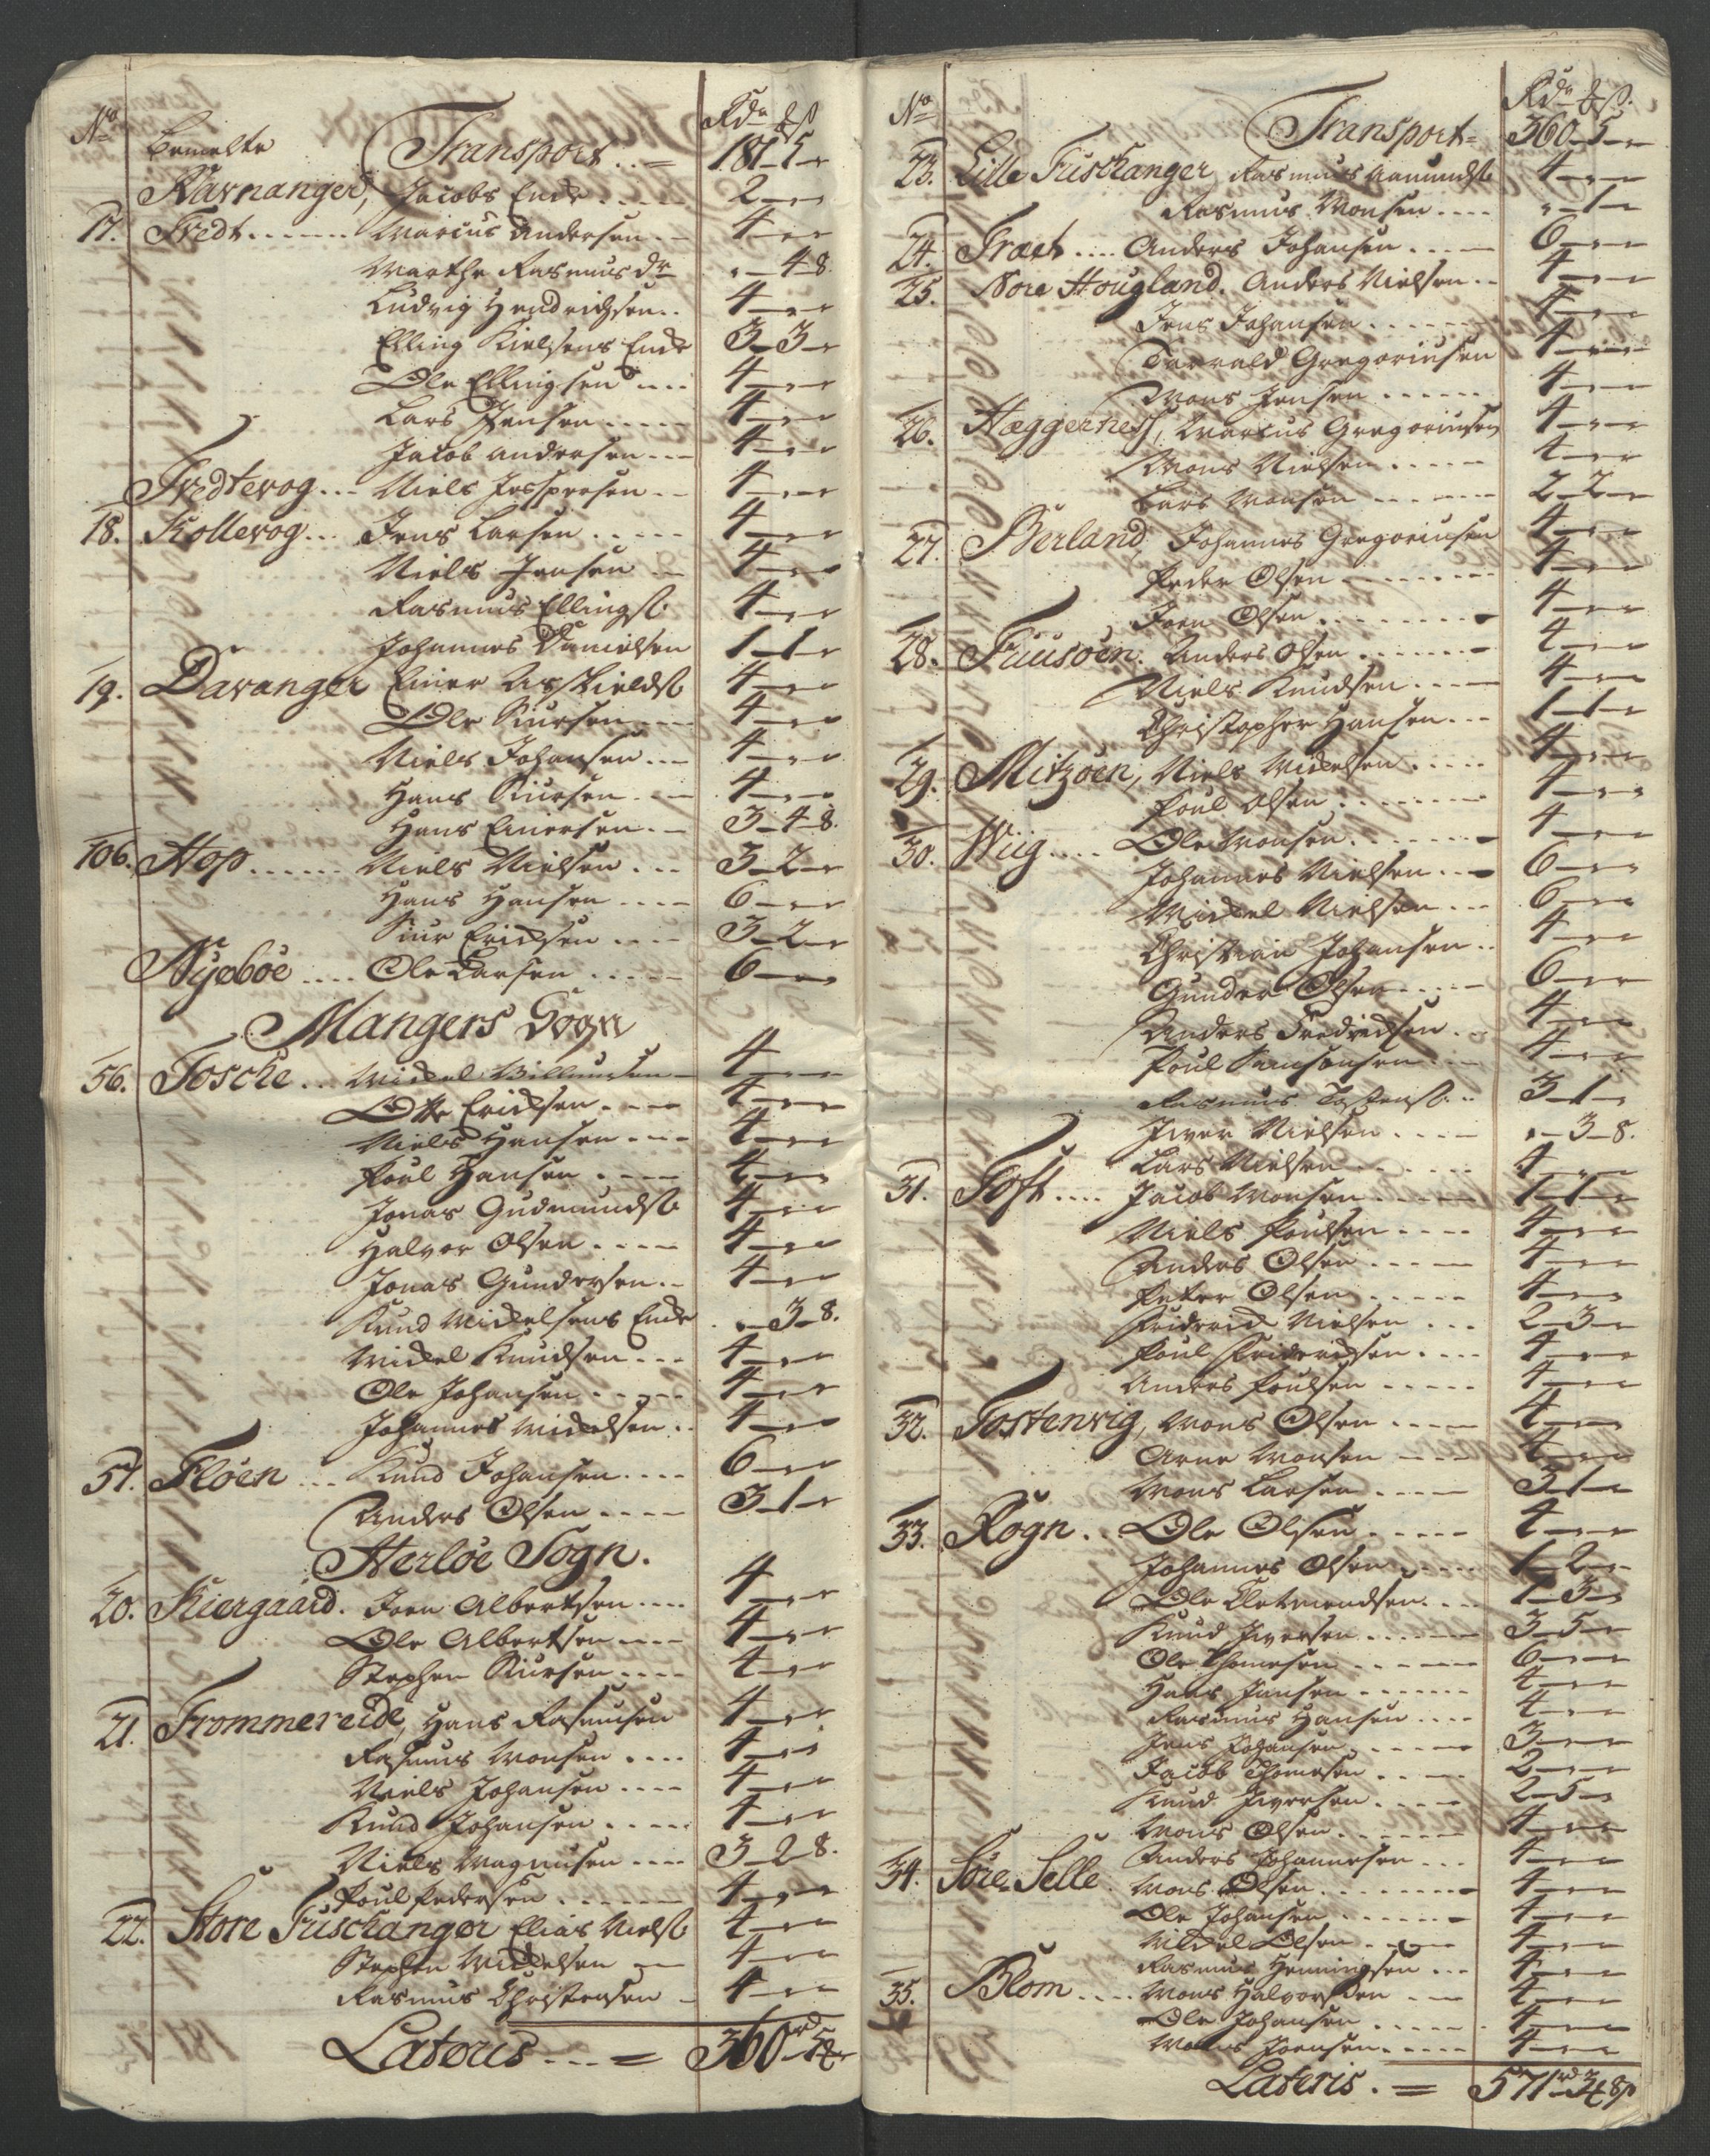 No Rdr ℔ ß
Bemelte Transport .. = 187 - 5 - "
Ravnanger, Jacobs Enke ..... 2 - " - "
17. Tredt ....... Marcus Andersen .. 4 - " - "
Marthe Rasmusdr " - 4 - 8.
Ludvig Hendrichsen .. 4 - " - "
Elling Nielsens Enke 3 - 3 - "
Ole Ellingsen .... 4 - " - "
Lars Jensen ..... 4 - " - "
Jacob Andersen ... 4 - " - "
Tredtevog ... Niels Jespersen .. 4 - " - "
18. Kollevog ... Jens Larsen ..... 4 - " - "
Niels Jensen .. 4 - " - "
Rasmus Ellings. 4 - " - "
Johannes Danielsen 1 - 1 - "
19. Davanger Einer Aschields. 4 - " - "
Ole Siursen .... 4 - " - "
Niels Johansen ... 4 - " - "
Hans Siursen ... 4 - " - "
Hans Einersen .. 3 - 4 - 8.
106. Hop ...... Niels Nielsen ... 3 - 2 - "
Hans Hansen .... 6 - " - "
Siur Erichsen .... 3 - 2 - "
Nyebøe .... Ole Larsen ..... 6 - " - "
Mangers Sogn
56. Tosche ... Michel Villumsen 4 - " - "
Otte Erichsen .... 4 - " - "
Niels Hansen .... 4 - " - "
Poul Hansen .... 4 - " - "
Jonas Gudmunds. 4 - " - "
Halvor Olsen .... 4 - " - "
Jonas Gundersen .. 4 - " - "
Knud Michelsens Enke " - 3 - 8.
Michel Knudsen ... 4 - " - "
Ole Johansen ..... 4 - " - "
Johannes Michelsen .. 4 - " - "
57. Fløen ... Knud Johansen .... 6 - " - "
Anders Olsen .... 3 - 1 - "
Herløe Sogn.
20. Kiergaard. Joen Albertsen .... 4 - " - "
Ole Albertsen .... 4 - " - "
Stephen Siursen .... 4 - " - "
21. Frommereide, Hans Rasmusen 4 - " - "
Rasmus Monsen .... 4 - " - "
Niels Johansen .... 4 - " - "
Knud Johansen ..... 4 - " - "
Niels Magnusen .... 3 - 2 - 8.
Poul Pedersen ...... 4 - " - "
22. Store Fuschanger Elias Niels. 4 - " - "
Stephen Michelsen .. 4 - " - "
Rasmus Christensen . 4 - " - "
Lateris ... = 360 rd - 5 ℔ "
No Rdr ℔ ß.
Transport = 360 - 5 - "
23. Lille Fuschanger Rasmus Aamunds. 4 - " - "
Rasmus Monsen .... " - 1 - "
24. Træet .... Anders Johansen ..... 6 - " - "
25. Nore Hougland. Anders Nielsen .. 4 - " - "
Jens Johansen ...... 4 - " - "
Torvald Gregoriusen 4 - " - "
Mons Jensen ...... 4 - " - "
26. Hæggernes, Marcus Gregoriusen 4 - " - "
Mons Nielsen ..... 4 - " - "
Lars Monsen ...... 2 - 2 - "
27. Berland, Johannes Gregoriusen 4 - " - "
Peder Olsen ....... 4 - " - "
Joen Olsen ........ 4 - " - "
28. Fuusøen. Anders Olsen ....... 4 - " - "
Niels Knudsen .... 4 - " - "
Christopher Hansen ... 1 - 1 - "
29. Mitzøen, Niels Michelsen ..... 4 - " - "
Poul Olsen ....... 4 - " - "
30. Wiig .... Ole Monsen ....... 4 - " - "
Johannes Nielsen ... 6 - " - "
Michel Nielsen ... 6 - " - "
Christian Johansen .. 4 - " - "
Gunder Olsen ..... 6 - " - "
Anders Fredrichsen .. 4 - " - "
Poul Samsonsen ... 4 - " - "
Rasmus Tostens. .. 3 - 1 - "
Iver Nielsen .... " - 3 - 8.
Lars Nielsen ...... 4 - " - "
31. Toft .... Jacob Monsen ..... 1 - 1 - "
Niels Poulsen .... 4 - " - "
Anders Olsen ..... 4 - " - "
Peter Olsen ..... 4 - " - "
Friderich Nielsen ... 2 - 3 - "
Poul Friderichsen .... 4 - " - "
Anders Poulsen ..... 4 - " - "
32. Tostenvig, Mons Olsen ..... 4 - " - "
Arne Monsen .... 4 - " - "
Mons Larsen ..... 3 - 1 - "
33. Rogn .. Ole Olsen ..... 4 - " - "
Johannes Olsen ..... 1 - 2 - "
Ole Cletmendsen .... 1 - 3 - "
Knud Iversen ...... 3 - 5 - "
Ole Thomesen ...... 6 - " - "
Hans Jansen ...... 4 - " - "
Rasmus Hansen .... 4 - " - "
Jens Johansen ...... 3 - " - "
Jacob Thomesen ..... 2 - " - "
Knud Iversen .... 2 - 5 - "
Mons Olsen ...... 4 - " - "
Anders Johannesen ... 4 - " - "
34. Søre Selle. Mons Olsen ........ 4 - " - "
Ole Johansen ...... 4 - " - "
Michel Olsen ..... 4 - " - "
Rasmus Henningsen ... 4 - " - "
35. Blom .... Mons Halvorsen ... 4 - " - "
Ole Johansen ..... 4 - " - "
Mons Joensen ..... 4 - " - "
Lateris . = 571 rd - 3 ℔ 8 ß